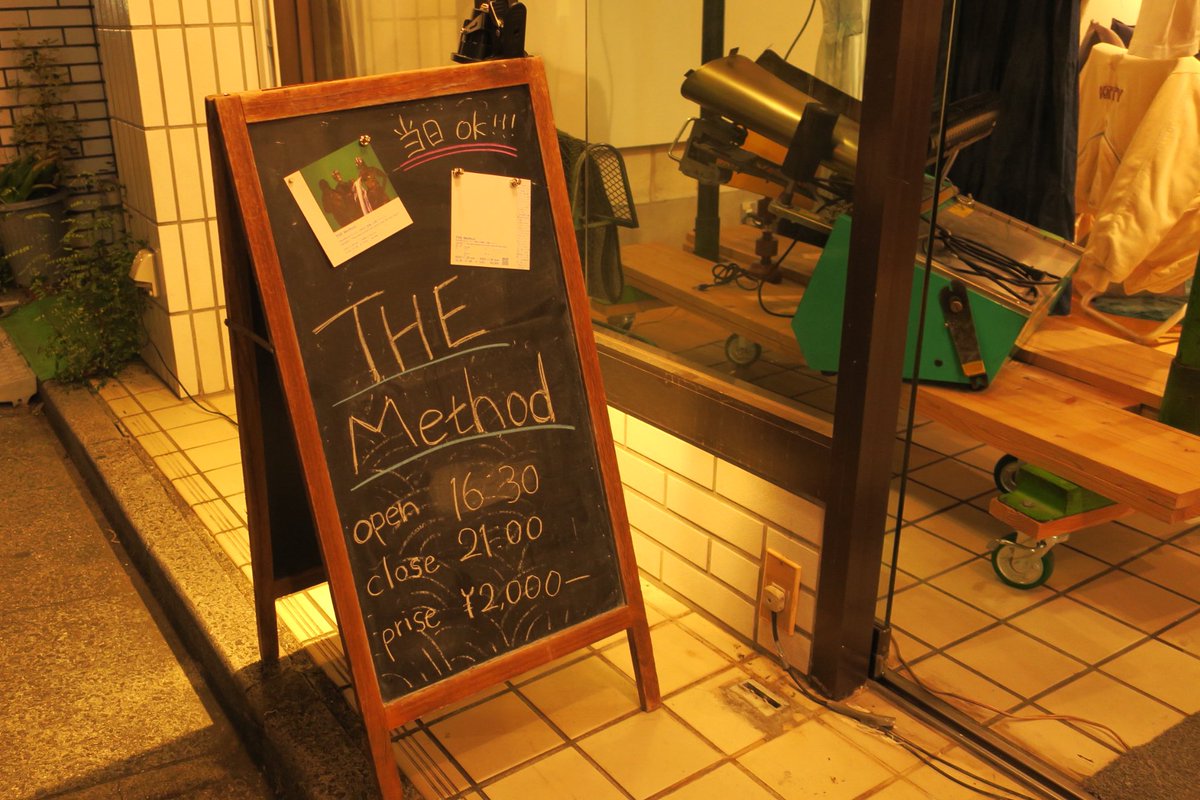 当日 OK!!!
THE
Method
open 16:30
close 21:00
prise ¥2,000-